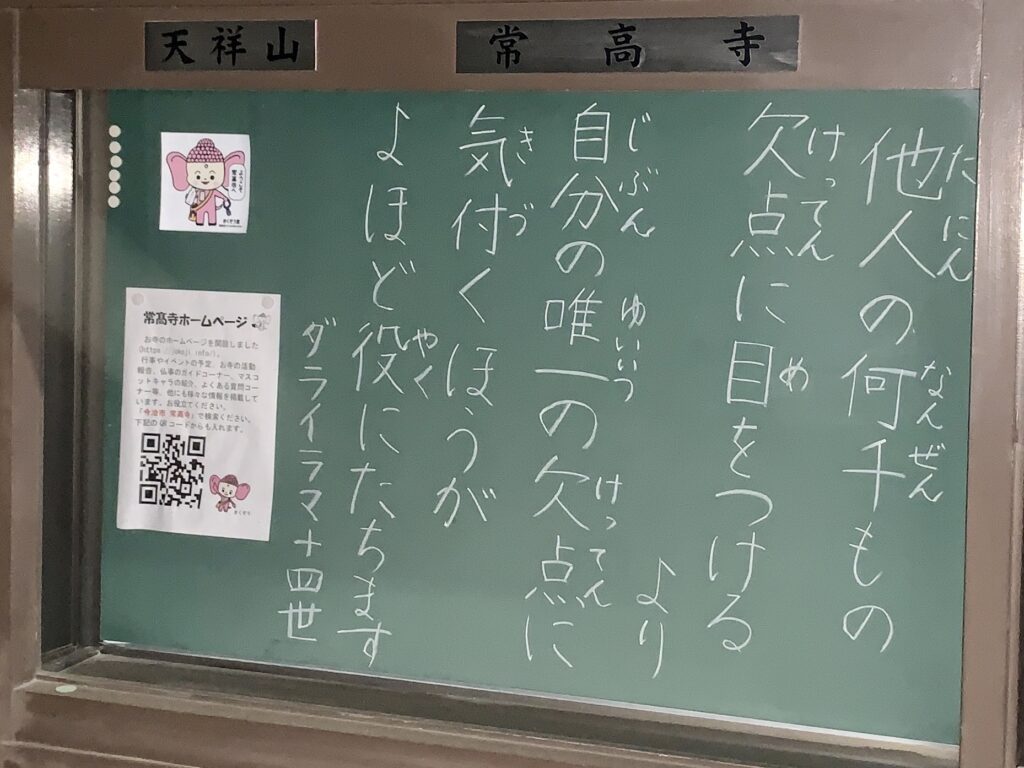 天祥山
常高寺
たにん なんぜん
他人の何千もの
けってん め
欠点に目をつける
より
じぶん ゆいいつ けってん
自分の唯一の欠点に
きづ
気付くほうが
やく
よほど役にたちます
ダライラマ十四世
ようこそ
常髙寺ホームページ
お寺のホームページを開設しました
(https://jokoji.info/)。
行事やイベントの予定、お寺の活動
報告、仏事のガイドコーナー、マスコ
ットキャラの紹介、よくある質問コー
ナー等、他にも様々な情報を掲載して
います。お役立てください。
「今治市 常高寺」で検索ください。
下記のQRコードからも入れます。